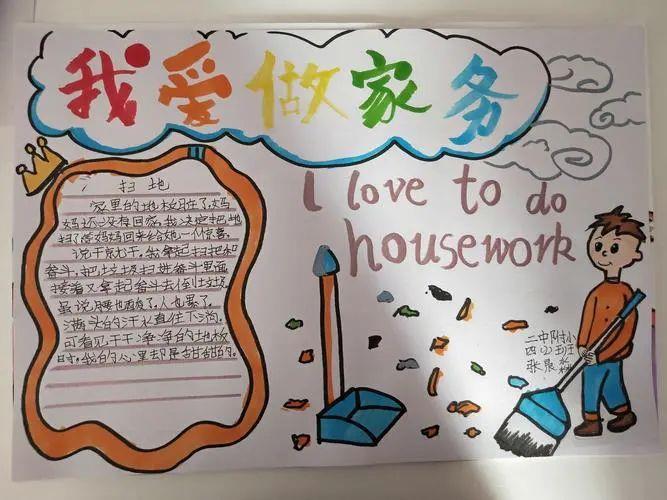 我爱做家务
I love to do
housework
扫地
家里的地板脏了,妈
妈还没有回家,我决定把地
扫了等妈妈回来给她一个惊喜。
说干就干,我拿起扫把和
畚斗,把垃圾扫进畚斗里面
接着又拿起畚斗去倒垃圾
虽说腰也酸了,人也累了。
满头的汗水直往下淌。
可看见干干净净的地板
时,我的心里却是甜甜的。
二中附小
四(2)班
张晨